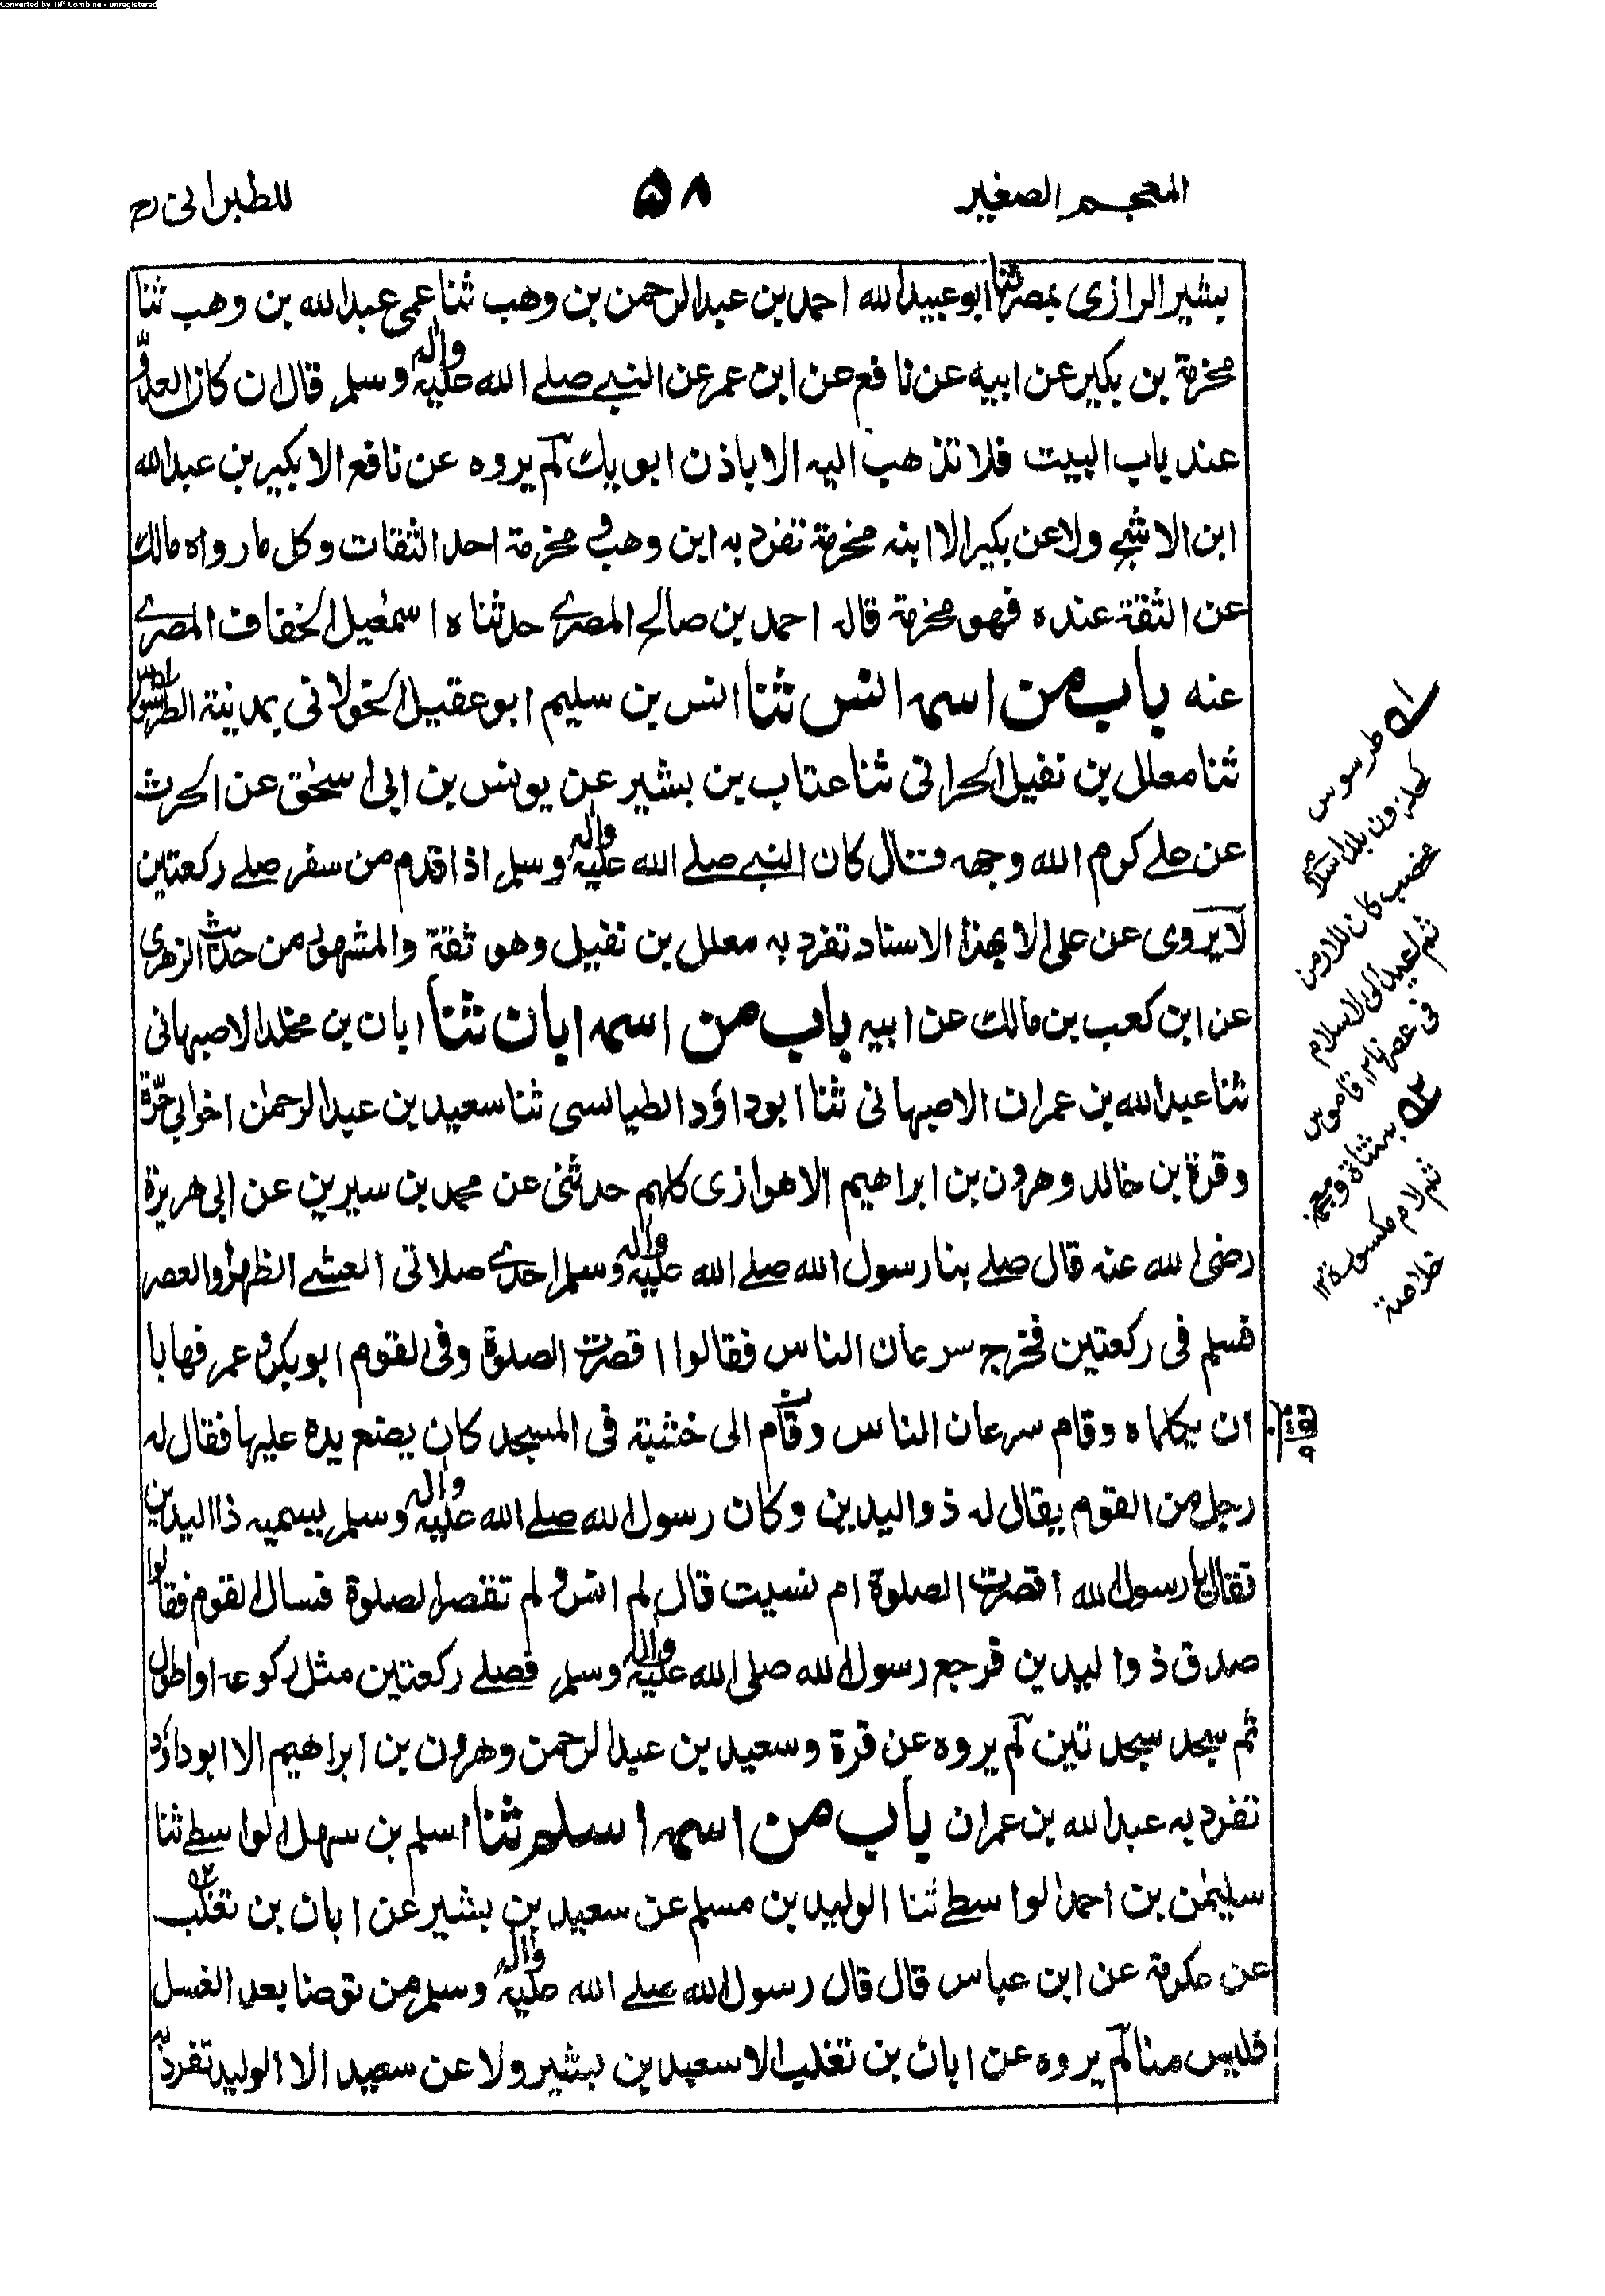 Converted by Tiff Combine - unregistered
المعجم الصغير
٥٨
للطبرانى رح
بشير الرازى بمصر ثنا ابو عبيد الله احمد بن عبد الرحمن بن وهب ثنا عمى عبد الله بن وهب ثنا
مخرمة بن بكير عن ابيه عن نافع عن ابن عمر عن النبى صلى الله عليه واله وسلم قال ان كان العدو
عند باب البيت فلا تذهب اليه الا باذن ابويك لم يروه عن نافع الا بكير بن عبد الله
ابن الاشج ولا عن بكير الا ابنه مخرمة تفرد به ابن وهب و مخرمة احد الثقات وكل ما رواه مالك
عن الثقة عنده فهو مخرمة قاله احمد بن صالح المصرى حدثناه اسمعيل الخفاف المصرى
عنه باب من اسمه انس ثنا انس بن سليم ابو عقيل الخولانى بمدينة الطرسوس
ثنا معلل بن نفيل الحرانى ثنا عتاب بن بشير عن يونس بن ابى اسحق عن الحرث
عن على كرم الله وجهه قال كان النبى صلى الله عليه واله وسلم اذا قدم من سفر صلى ركعتين
لا يروى عن على الا بهذا الاسناد تفرد به معلل بن نفيل وهو ثقة والمشهور من حديث الزهرى
عن ابن كعب بن مالك عن ابيه باب من اسمه ابان ثنا ابان بن مخلد الاصبهانى
ثنا عبد الله بن عمران الاصبهانى ثنا ابو داؤد الطيالسى ثنا سعيد بن عبد الرحمن اخو ابى حرة
وقرة بن خالد وهرون بن ابراهيم الاهوازى كلهم حدثنى عن محمد بن سيرين عن ابى هريرة
رضى الله عنه قال صلى بنا رسول الله صلى الله عليه واله وسلم احدى صلاتى العشى الظهر او العصر
فسلم فى ركعتين فخرج سرعان الناس فقالوا اقصرت الصلوة وفى القوم ابو بكر و عمر فهابا
ان يكلماه وقام سرعان الناس وقام الى خشبة فى المسجد كان يضع يده عليها فقال له
رجل من القوم يقال له ذو اليدين وكان رسول الله صلى الله عليه واله وسلم يسميه ذا اليدين
فقال يا رسول الله اقصرت الصلوة ام نسيت قال لم انس و لم تقصر الصلوة فسال القوم فقالوا
صدق ذو اليدين فرجع رسول الله صلى الله عليه واله وسلم فصلى ركعتين مثل ركوعه او اطول
ثم سجد سجدتين لم يروه عن قرة وسعيد بن عبد الرحمن وهرون بن ابراهيم الا ابو داؤد
تفرد به عبد الله بن عمران باب من اسمه اسلم ثنا اسلم بن سهل الواسطى ثنا
سليمن بن احمد الواسطى ثنا الوليد بن مسلم عن سعيد بن بشير عن ابان بن تغلب
عن عكرمة عن ابن عباس قال قال رسول الله صلى الله عليه واله وسلم من توضا بعد الغسل
فليس منا لم يروه عن ابان بن تغلب الا سعيد بن بشير ولا عن سعيد الا الوليد تفرد به
طرسوس
كحلزون بلد اسلامى
مخصب كان للارمن
ثم اعيد الى الاسلام
فى عصرنا ١٢ قاموس
بمثناة ومعجمة
ثم لام مكسورة ١٢
خلاصة